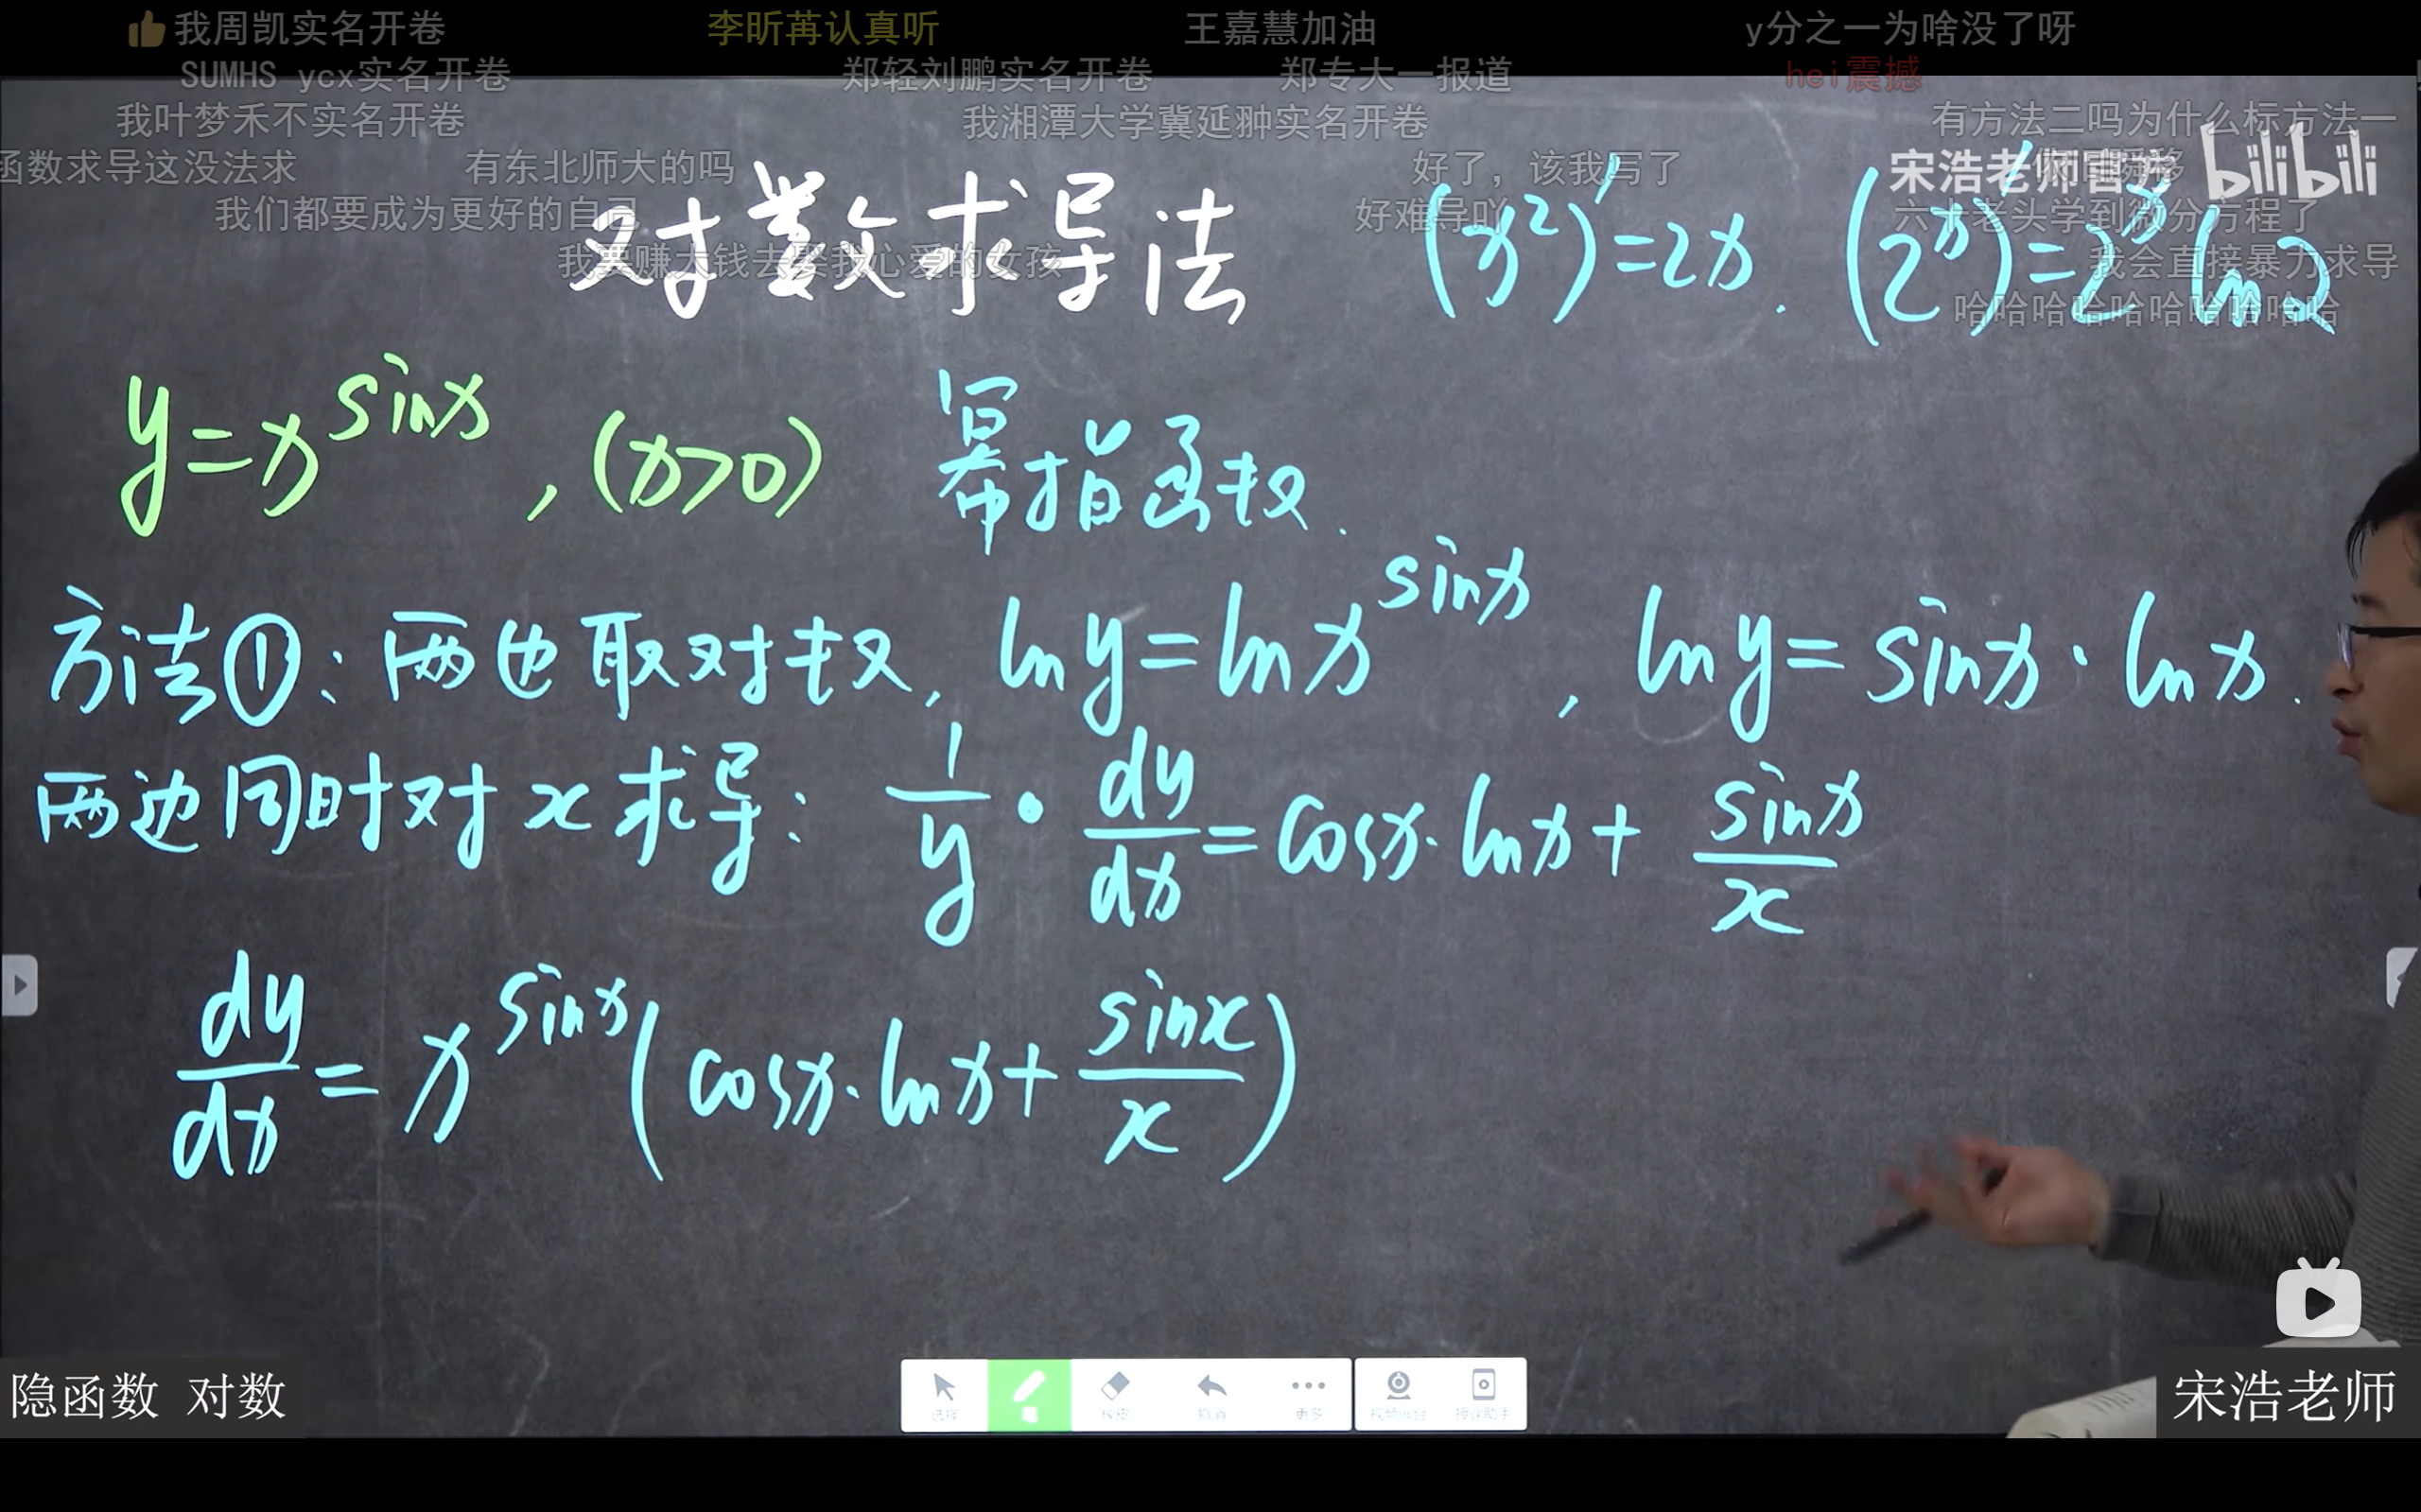 我周凯实名开卷 李昕苒认真听 王嘉慧加油 y分之一为啥没了呀
SUMHS ycx实名开卷 郑轻刘鹏实名开卷 郑专大一报道 hei震撼
我叶梦禾不实名开卷 我湘潭大学冀延翀实名开卷 有方法二吗为什么标方法一
函数求导这没法求 有东北师大的吗 好了，该我写了 宋浩老师官方 bilibili
我们都要成为更好的自己 好难导吖 六十老头学到微分方程了
我要赚大钱去娶我心爱的女孩 我会直接暴力求导
哈哈哈哈哈哈哈哈哈哈
对数求导法 (x²)'=2x. (2ˣ)'=2ˣ ln2
y=x^sinx , (x>0) 幂指函数.
方法①: 两边取对数, lny=lnx^sinx , lny=sinx·lnx.
两边同时对x求导: 1/y · dy/dx = cosx·lnx + sinx/x
dy/dx = x^sinx ( cosx·lnx + sinx/x )
选择 笔 更多
隐函数 对数 宋浩老师